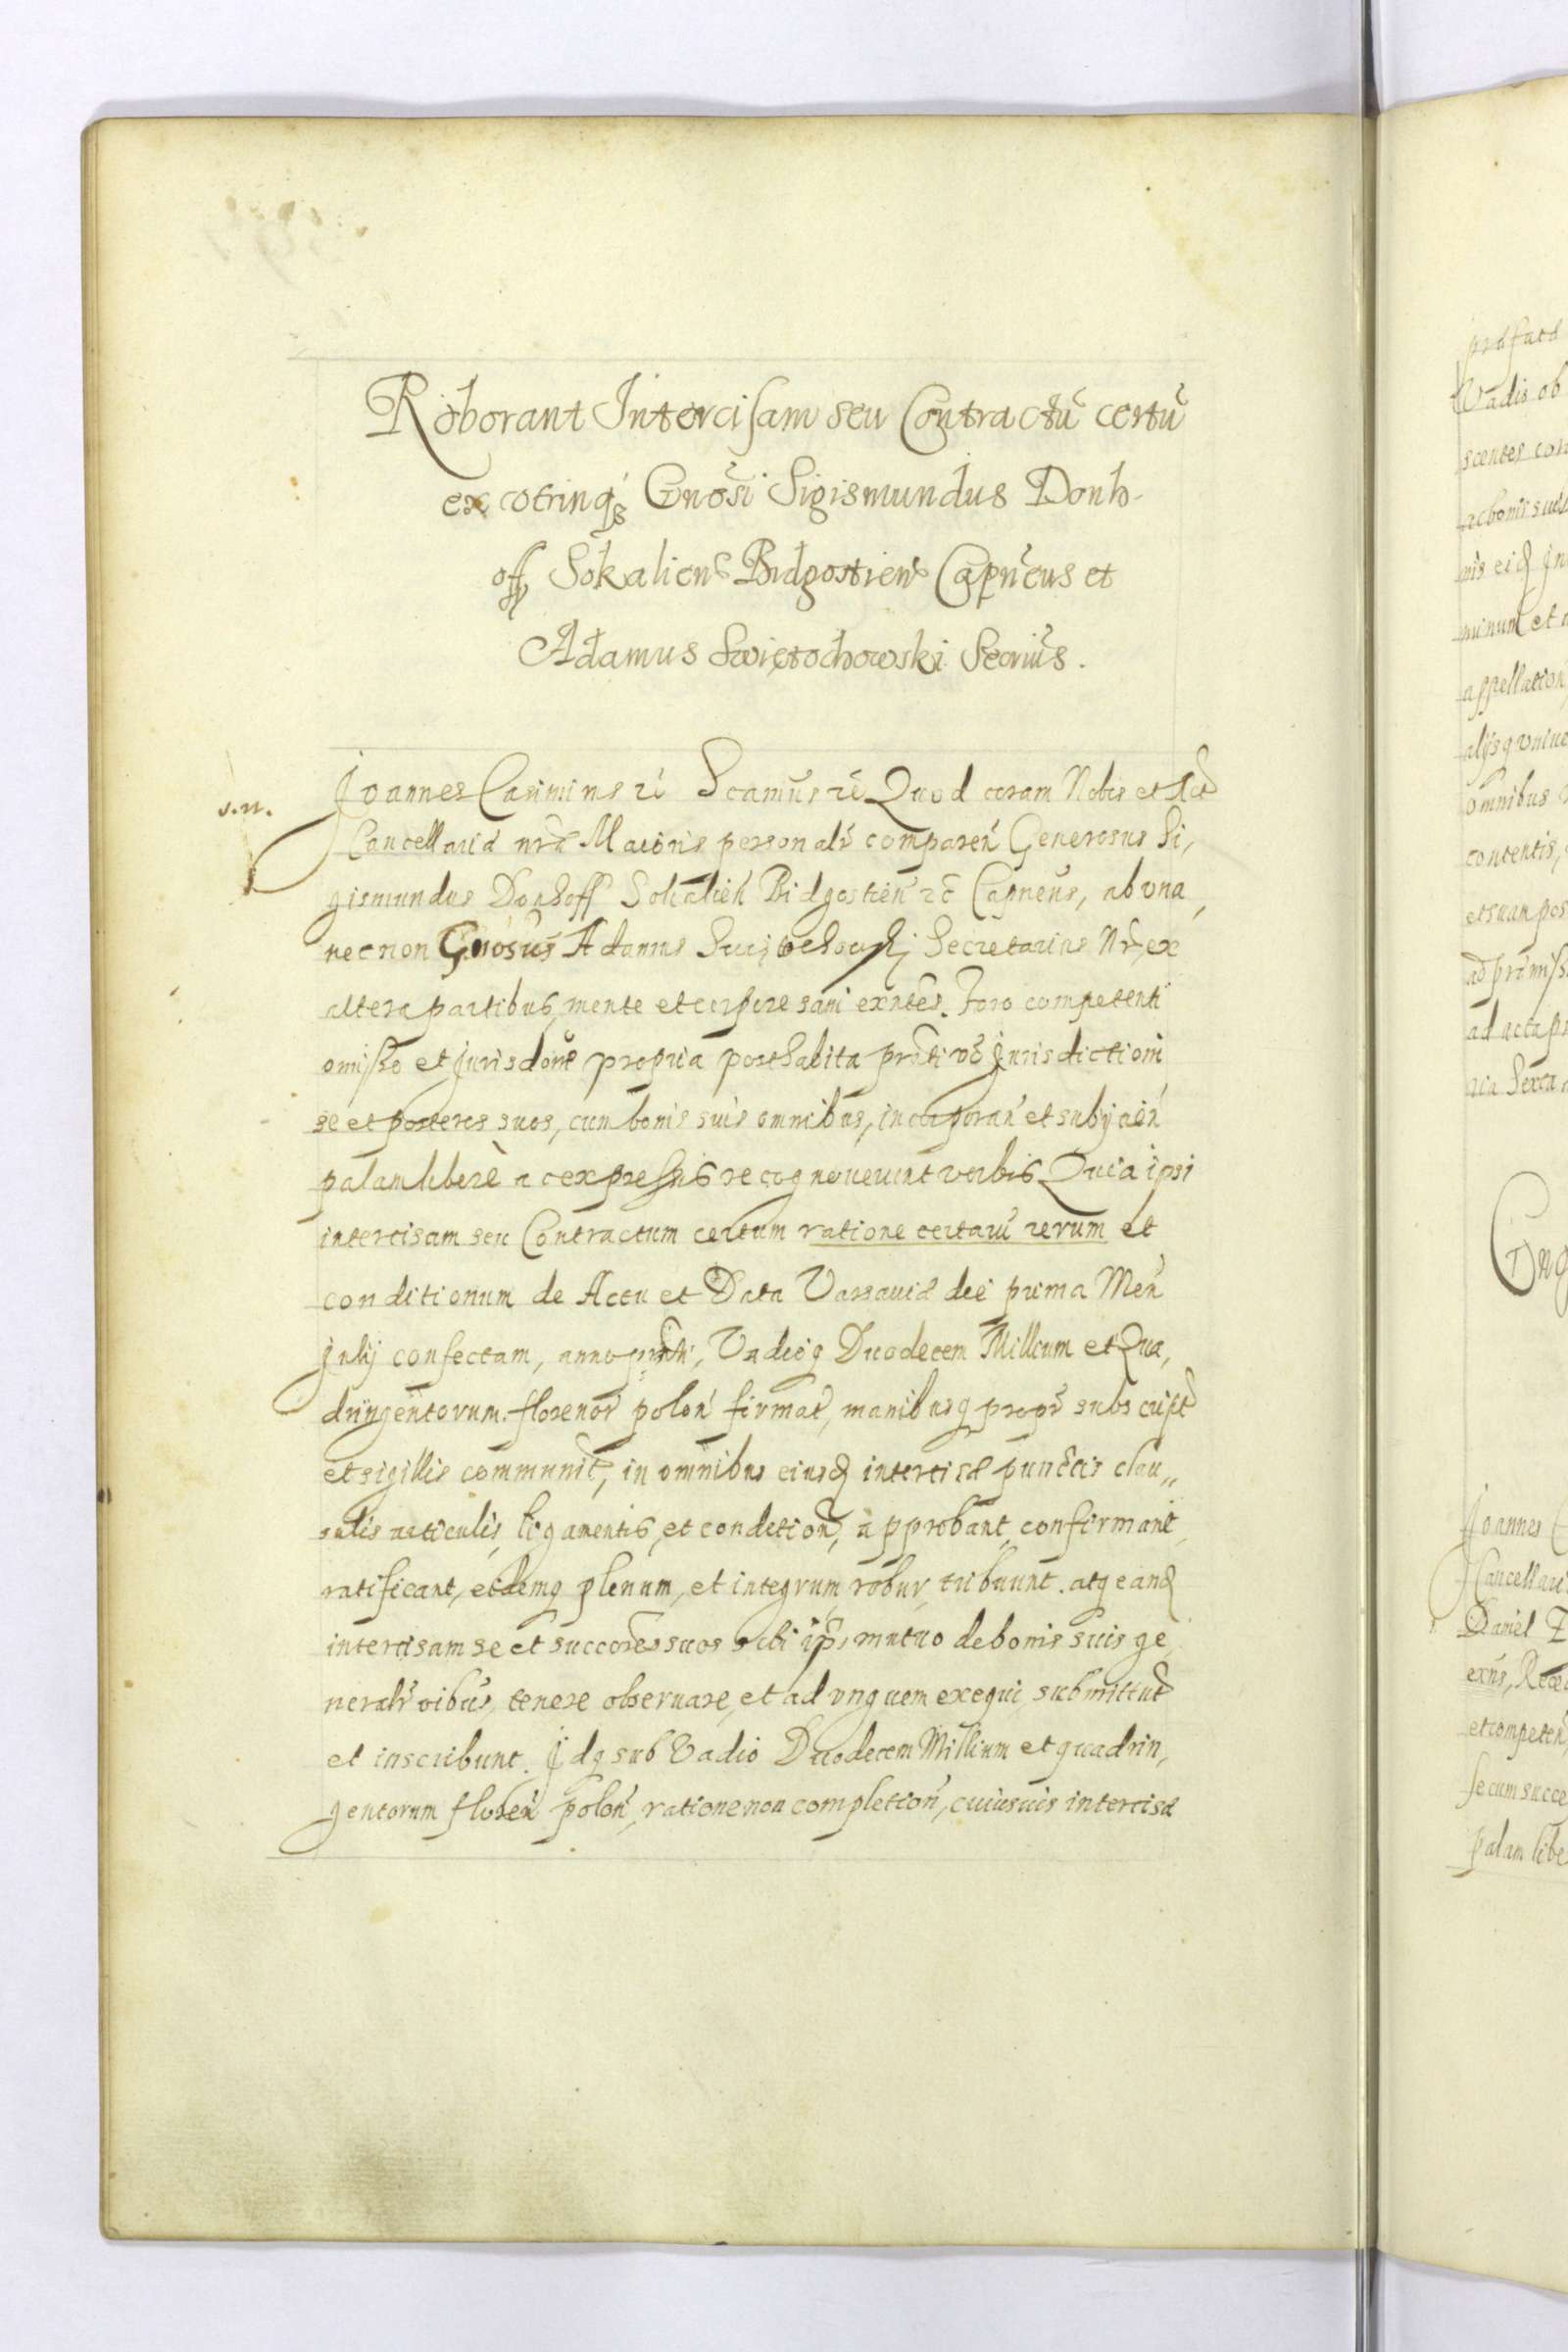 Roborant Intercisam seu Contractū certū
ex vtrinq3 Gnosi Sigismundus Donh-
off, Sokalien̄ Bidgostien̄ Capn̄eus et
Adamus Swiętochowski Secriūs.
s.n.
Joannes Casimirus rc̄ Scamūs rc̄ Quod coram Nobis et Act
Cancellariæ nr̄æ Maioris personalr̄ comparen̄ Generosus Si,
gismundus Donhoff Sokalień Bidgostień rc̄ Capneūs, ab vna,
necnon Gnosūs Adamus Swiętochowski Secretarius Nr̄, ex
altera partibus, mente et corpore sani exn̄tes. Foro competenti
omisso et Jurisdone propria posthabita prn̄ti vō Jurisdictioni
se et posteros suos, cum bonis suis omnibus, incorporań et subijcień
palam liberè ac expressis recognoverunt verbis Quia ipsi
intercisam seu Contractum certum ratione certarū rerum et
conditionum de Actu et Data Varsaviæ die prima Men̄
Julij confectam, anno prn̄ti, Vadioq Duodecem Millium et Qua,
dringentorum florenor̄ polon̄ firmat̄, manibusq propr̄ subscript
et sigillis communit̄, in omnibus eiusd intercisæ punctis clau,,
sulis articulis, ligamentis, et condition̄, approbant, confirmant,
ratificant, eidemq plenum, et integrum robur, tribuunt. atq eand
intercisam se et succores suos sibi ips̄ mutuo de bonis suis ge,
neralr̄ oibūs, tenere observare, et ad vnguem exequi, submittunt
et inscribunt. Idq sub Vadio Duodecem Millium et quadrin,
gentorum floreń poloń, ratione non completioń, cuiusvis intercisæ
præfatæ
Vadio ob
scentes con
ac bonis suis
nis eid In
minum et
appellation
alijsq vniue
omnibus
contentis,
et suam pos
ad præmiss
ad acta pr
ria Sexta
Joannes C
Cancellari
Daniel
exn̄s, Rec
et competen
se cum succe
palam libe